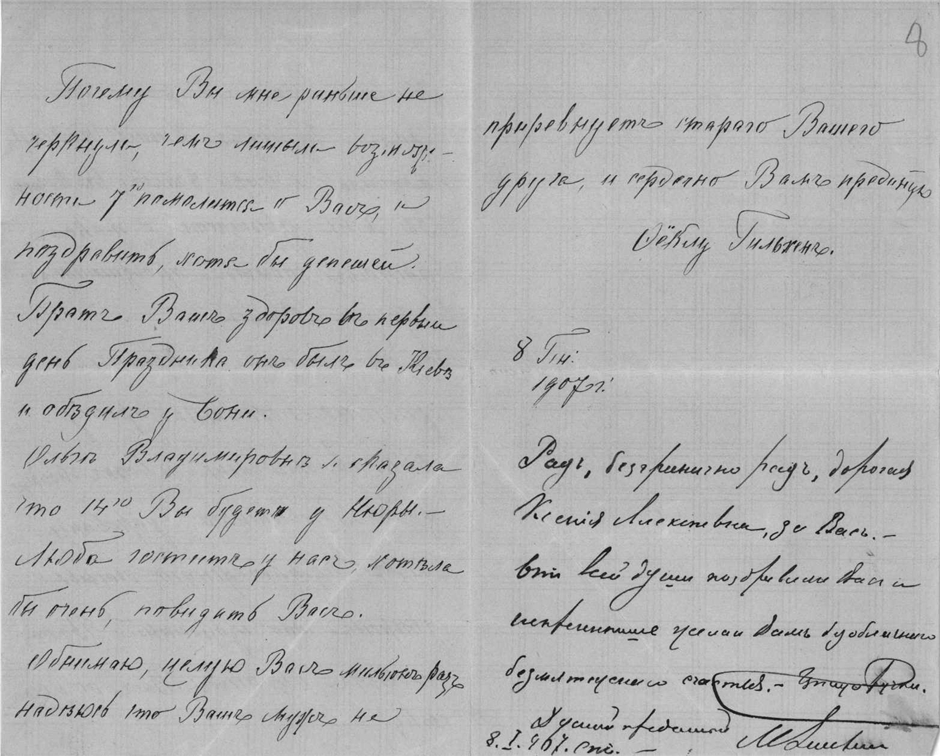 Почему Вы мне раньше не
черкнули, чемъ лишили возмож-
ности 7го помолится о Васъ, и
поздравить, хотя бы депешей.
Братъ Вашъ здоровъ въ первый
день Праздника онъ былъ въ Кіевѣ
и обѣдалъ у Сони.
Ольга Владимировна сказала
что 14го Вы будете у Нюры.-
Люба гоститъ у насъ, хотѣла
бы очень, повидать Васъ.
Обнимаю, цѣлую Васъ мильонъ разъ
надѣюсь что Вашъ мужъ не
8
приревнуетъ стараго Вашего
друга, и сердечно Вамъ преданную
Ѳёклу Гильхенъ.
8 Ян:
1907 г.
Радъ, безгранично радъ, дорогая
Ксенія Алексѣевна, за Васъ.-
Отъ всей души поздравляю Васъ и
искреннѣйше желаю Вамъ безоблачнаго
безмятежнаго счастья.- Цѣлую Ручки.
Душой преданный
8. I. 907.